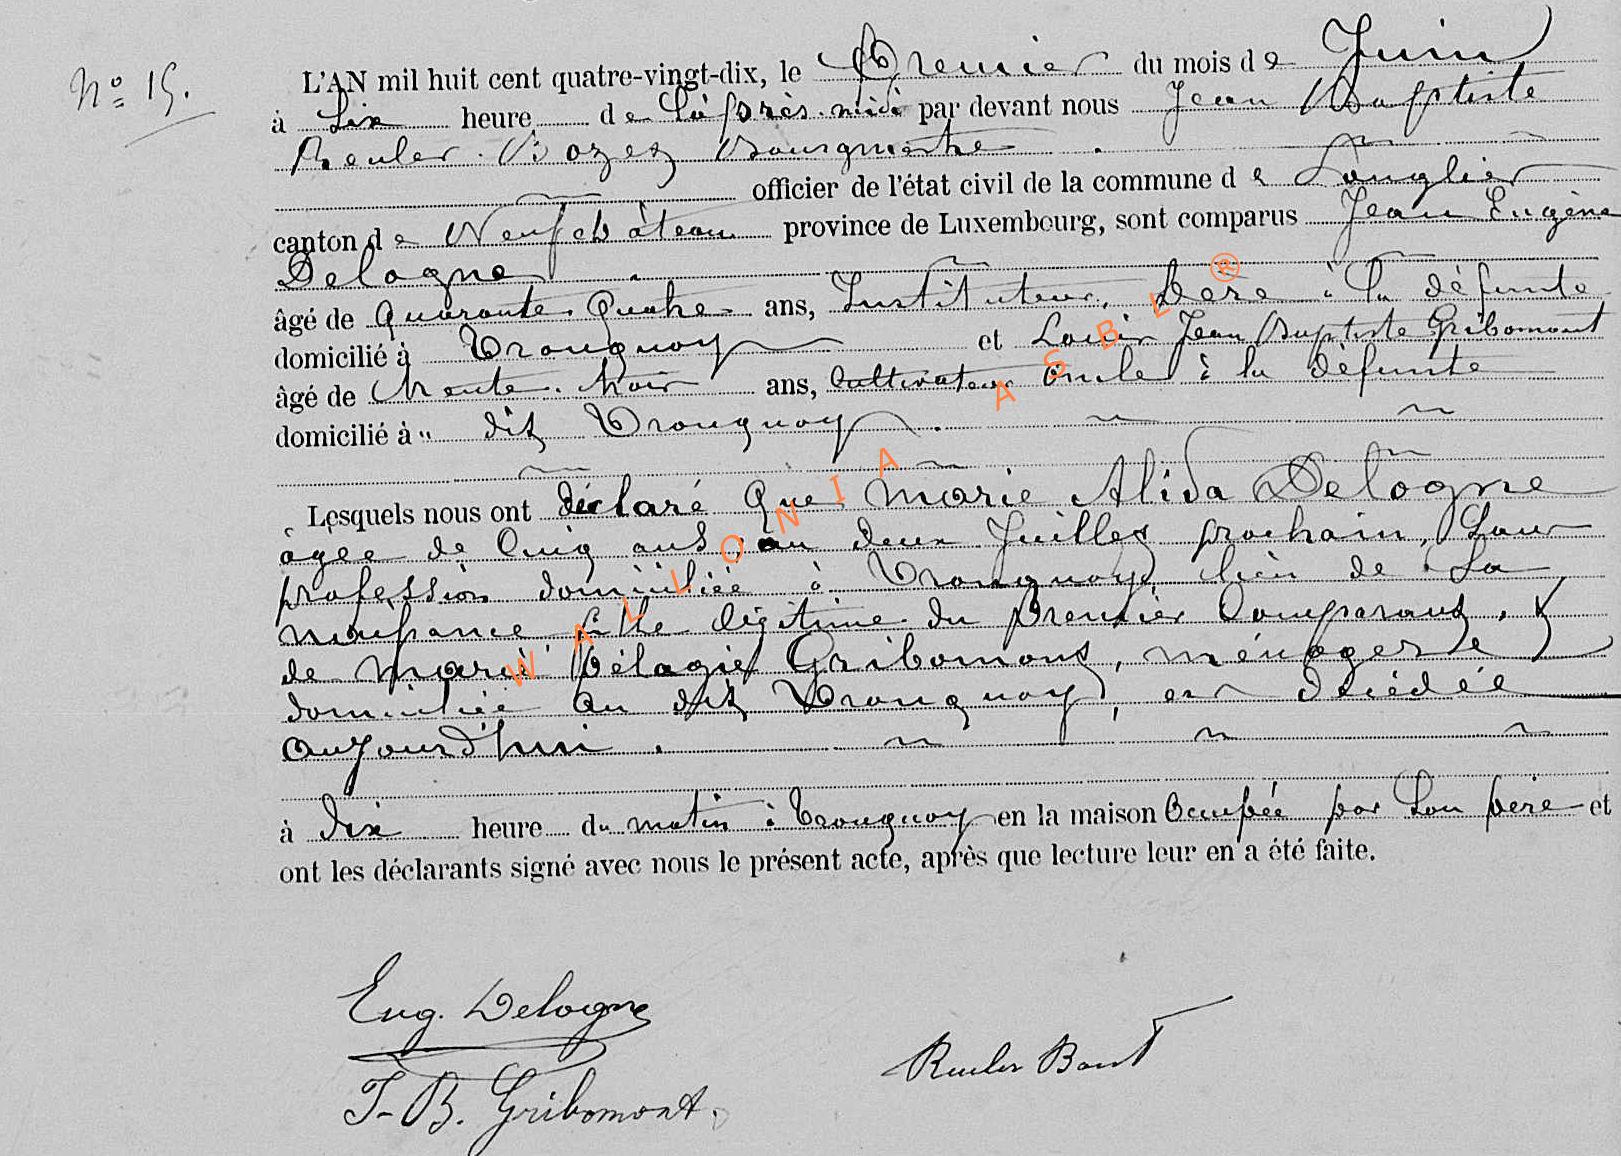 No 15.
L'AN mil huit cent quatre-vingt-dix, le Premier du mois de Juin
à Six heure de l'après-midi par devant nous Jean Baptiste
Reuler Bozet Bourgmestre
officier de l'état civil de la commune de Longlier
canton de Neufchâteau province de Luxembourg, sont comparus Jean Eugène
Delogne
âgé de Quarante Quatre ans, Instituteur, Père à la défunte
domicilié à Tronquoy et Louis Jean Baptiste Gribomont
âgé de trente-trois ans, Cultivateur oncle à la défunte
domicilié à dit Tronquoy.
Lesquels nous ont déclaré que Marie Alida Delogne
âgée de Cinq ans au deux Juillet prochain, Sans
profession domiciliée à Tronquoy lieu de Sa
naissance fille légitime du Premier Comparant, &
de Marie Pélagie Gribomont, ménagère
domiciliée au dit Tronquoy, est décédée
aujourd'hui.
à dix heure du matin à Tronquoy en la maison Occupée par Son père et
ont les déclarants signé avec nous le présent acte, après que lecture leur en a été faite.
Eug. Delogne
J-B. Gribomont.
WALLONIA ASBL ®